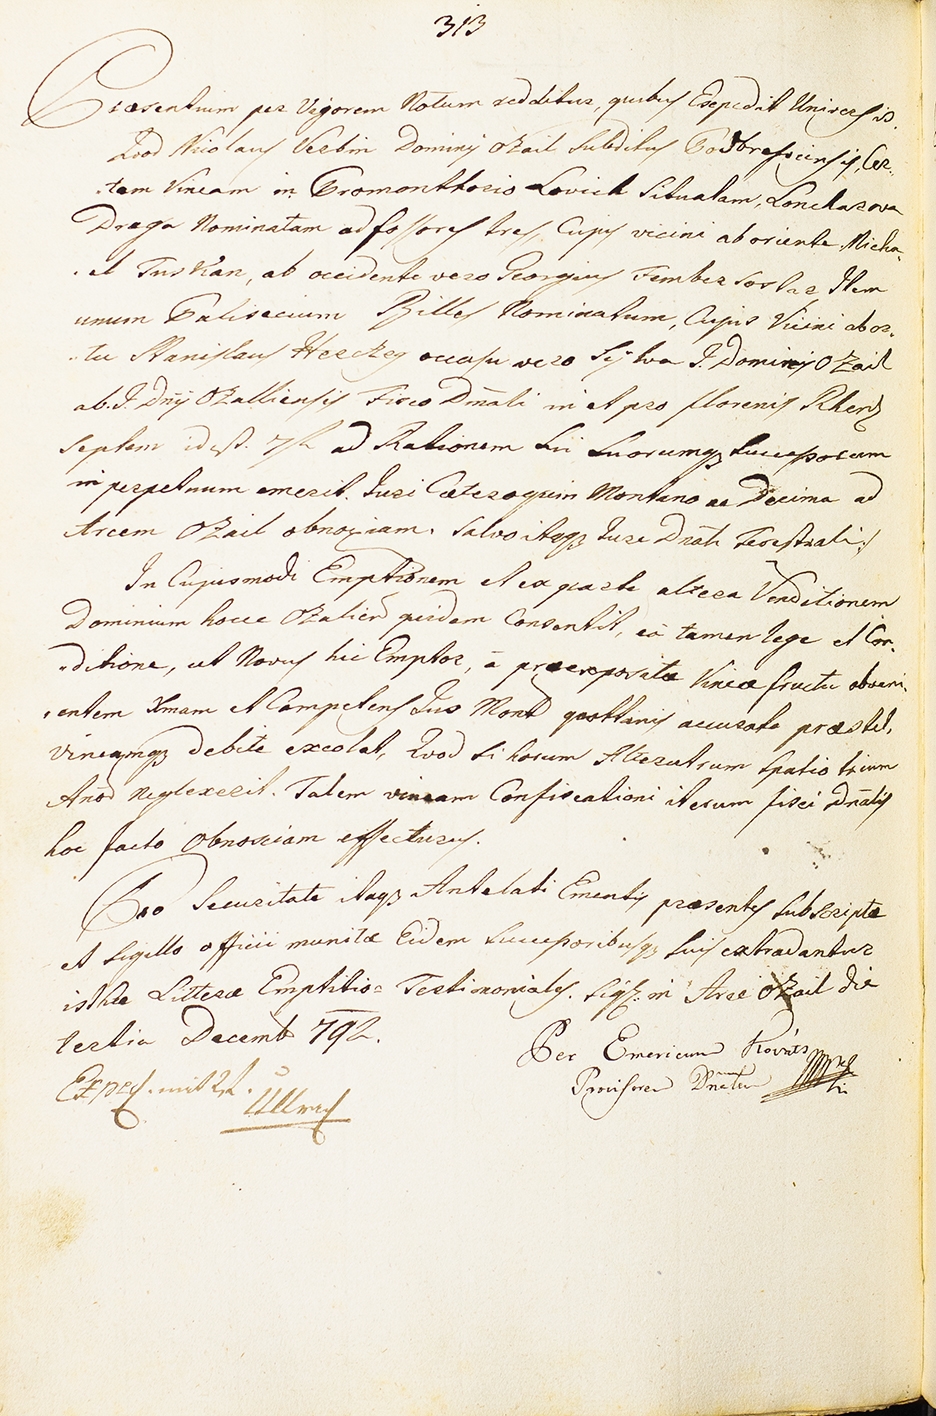 313
Præsentium per Vigorem Notum redditur, quibus Expedit Universis.
Quod Nicolaus Verbin Dominij Ozail Subditus Podbresiensis, Cer-
tam Vineam in Promonthorio Lovich Situatam, Loncharova
Draga Nominatam ad fossores tres, Cujus vicini ab oriente Micha-
el Tuskan, ab occidente vero Georgius Item
unum Nominatum, Cujus Vicini ab or-
tu Stanislaus occasu vero Sylva I. Dominij Ozail
ab I. Dnij Ozalliensis Fisco Dnali in et pro florenis Rhens
Septem id est 7 f ad Rationem Sui Suorumq Successorum
in perpetuum emerit. Juri Cæteroquin Montano ac Decima ad
Arcem Ozail obnoxiam. Salvo itaq Jure Dnali Terestrali:/
In Cujusmodi Emptionem et ex parte altera Venditionem
Dominium hocce Ozalien quidem Consentit, eâ tamen lege et Con-
ditione, ut Novus hic Emptor, â præexposita Vineæ fructu obveni-
entem Xmam et Competens Jus Mont quottanis accurate præstet,
vineamq debite excolat, Quod Si horum Alterutrum Spatio trium
Anor Neglexerit. Talem vineam Confiscationi iterum fisci Dnalis
hoc facto Obnoxiam effecturus.
Pro Securitate itaq Antelati Ementis præsentes Subscriptæ
et Sigillo officii munitæ Eidem Successoribusq Suis extradantur
isthæ Litteræ Emptitio= Testimoniales. Sig. in Arce Ozail die
tertia Decemb 792.
Per Emericum Kováts
Provisorem Dnalem
Exped.